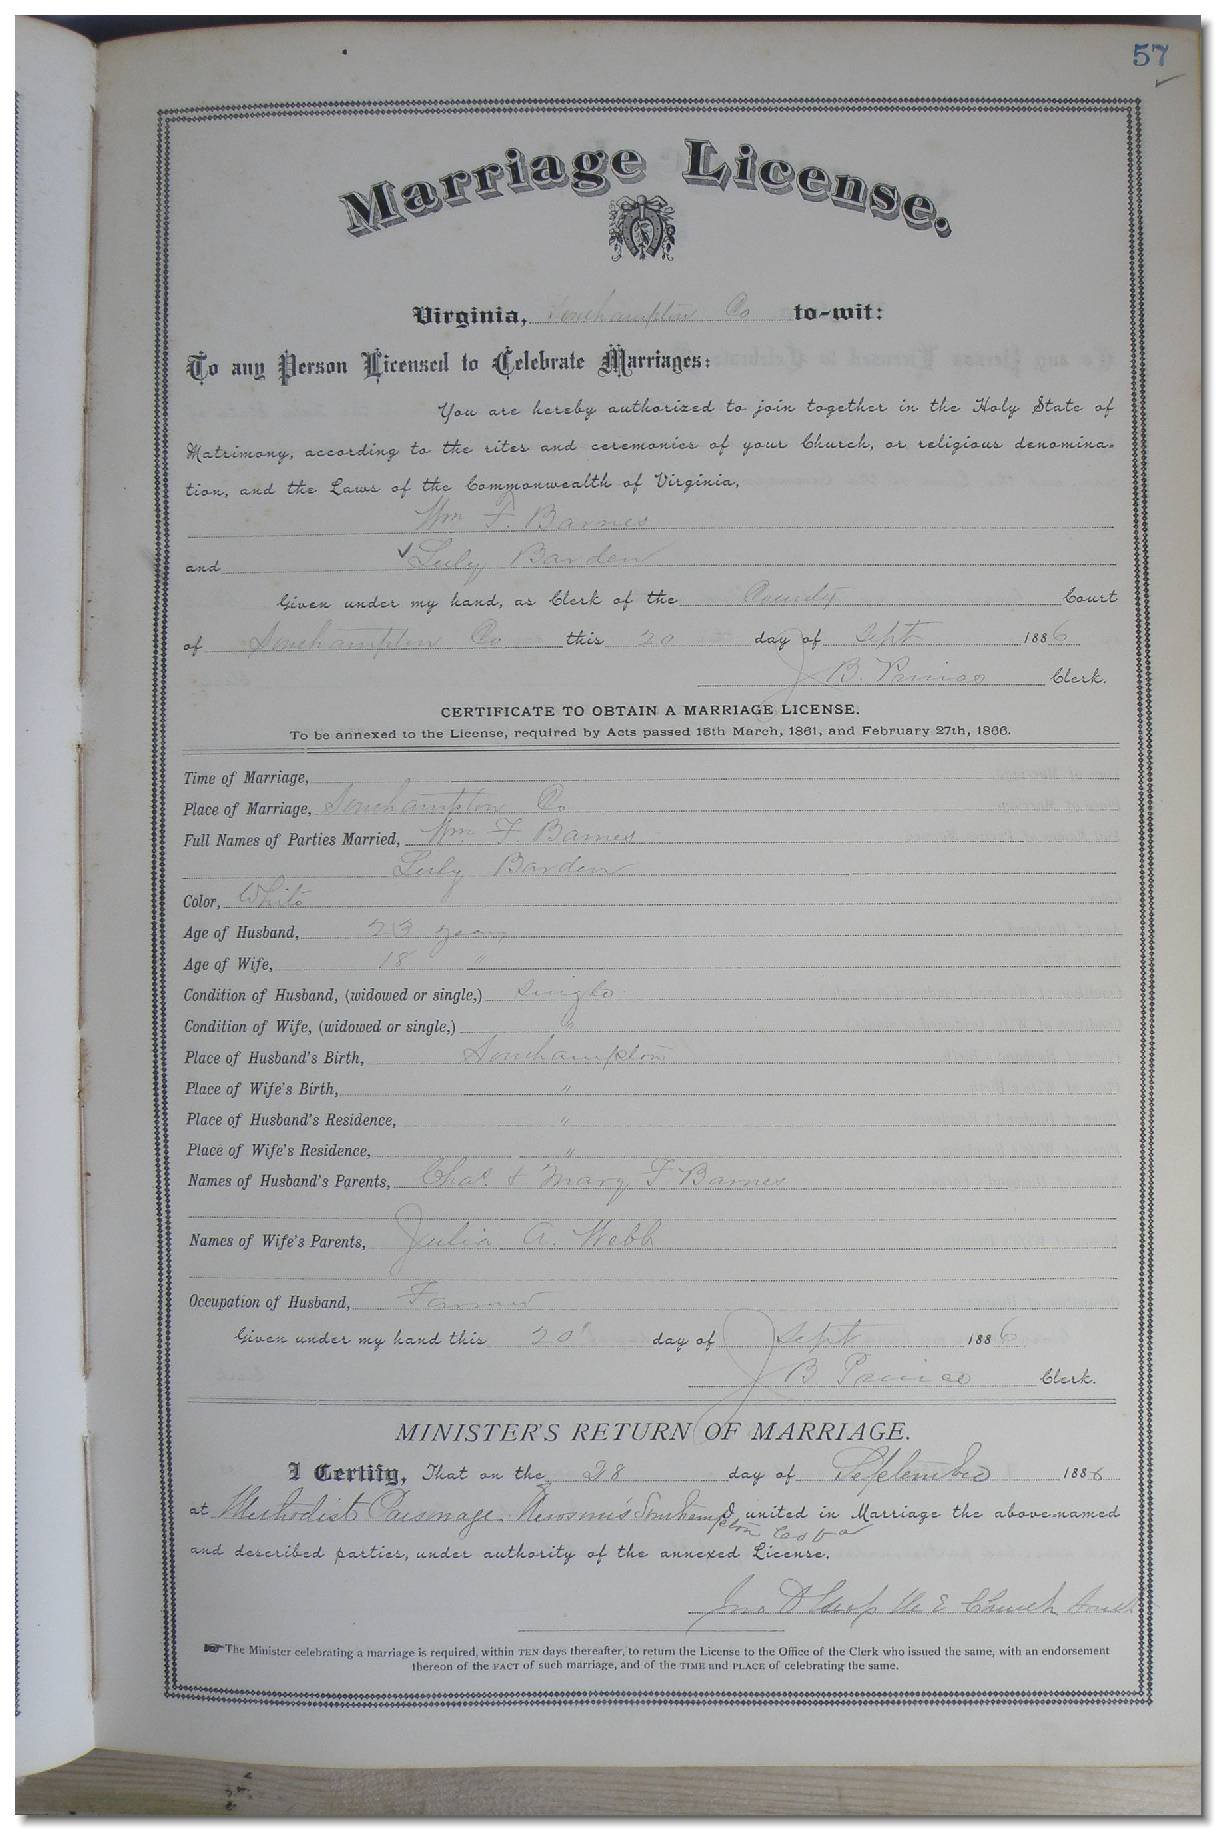 57
Marriage License.
Virginia, Southampton Co to-wit:
To any Person Licensed to Celebrate Marriages:
You are hereby authorized to join together in the Holy State of
Matrimony, according to the rites and ceremonies of your Church, or religious denomina-
tion, and the Laws of the Commonwealth of Virginia,
Wm F. Barnes
and Luly Barden
Given under my hand, as Clerk of the County Court
of Southampton Co this 20 day of Sept 1886
J. B. Prince Clerk.
CERTIFICATE TO OBTAIN A MARRIAGE LICENSE.
To be annexed to the License, required by Acts passed 15th March, 1861, and February 27th, 1866.
Time of Marriage,
Place of Marriage, Southampton Co
Full Names of Parties Married, Wm F Barnes
Luly Barden
Color, White
Age of Husband, 23 years
Age of Wife, 18 "
Condition of Husband, (widowed or single,) Single
Condition of Wife, (widowed or single,) "
Place of Husband's Birth, Southampton
Place of Wife's Birth, "
Place of Husband's Residence, "
Place of Wife's Residence, "
Names of Husband's Parents, Chas. & Mary F Barnes
Names of Wife's Parents, Julia A. Webb
Occupation of Husband, Farmer
Given under my hand this 20" day of Sept 1886
J B Prince Clerk.
MINISTER'S RETURN OF MARRIAGE.
I Certify, That on the 28 day of September 1886
at Methodist Parsonage Newsom's Southampton Co Va I united in Marriage the above-named
and described parties, under authority of the annexed License.
Jno D M E Church South
The Minister celebrating a marriage is required, within TEN days thereafter, to return the License to the Office of the Clerk who issued the same, with an endorsement
thereon of the FACT of such marriage, and of the TIME and PLACE of celebrating the same.